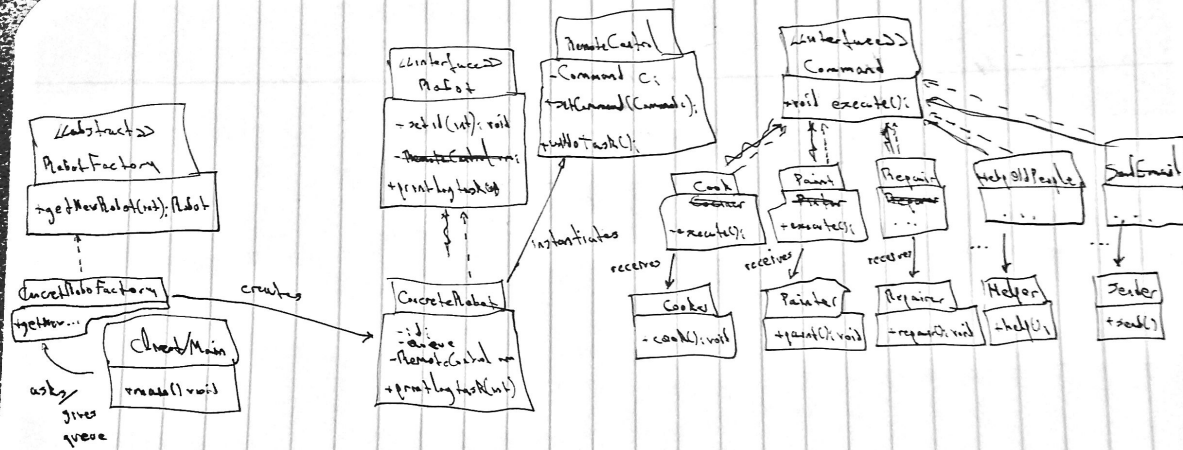 <<abstract>>
RobotFactory
+getNewRobot(int): Robot
ConcretRoboFactory
+getNew...
Client/Main
+main() void
asks/
gives
queue
creates
<<interface>>
Robot
-setid(int): void
-RemoteControl
+printLogtask
ConcreteRobot
-id;
-queue
-RemoteControl
+printLogtask(int)
instantiates
RemoteControl
-Command c;
+setCommand(Command c);
<<interface>>
Command
+void execute();
Cook
-execute();
receives
Cooker
-cook(): void
Paint
+execute();
receives
Painter
+paint(): void
Repair
...
receives
Repairer
-repair(): void
HelpOldPeople
...
...
Helper
+help();
SendEmail
....
...
Sender
+send()